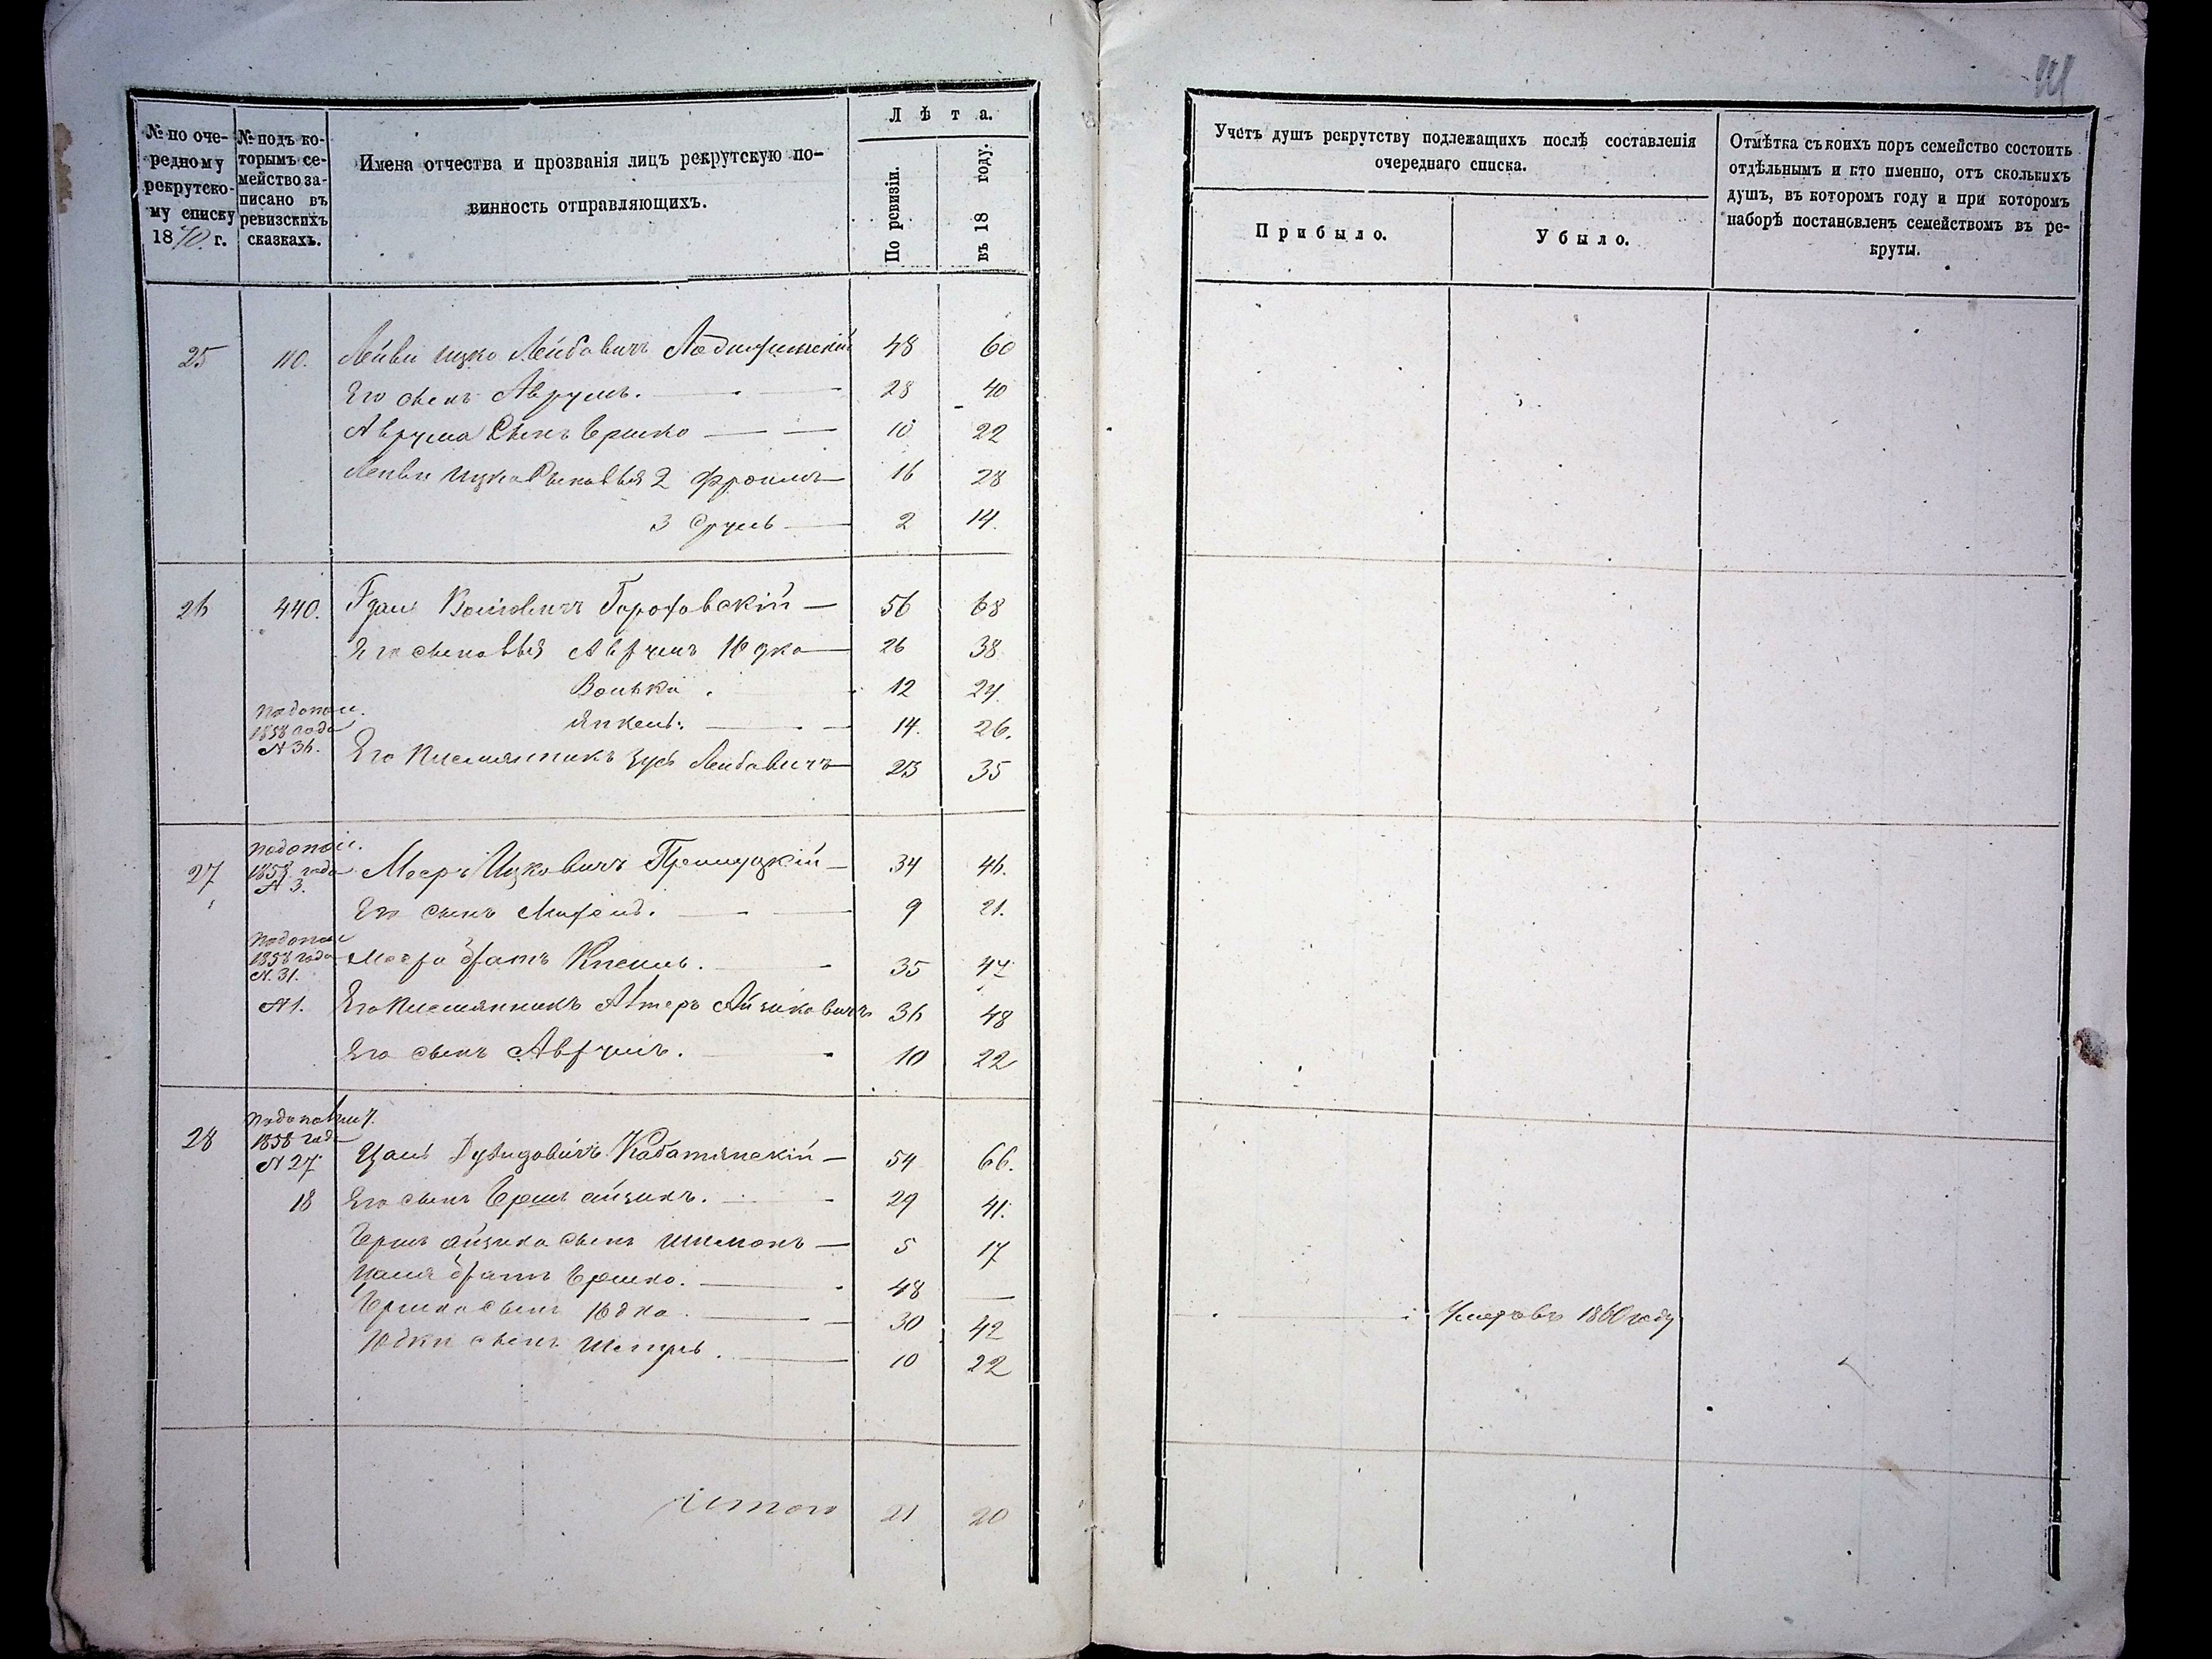 № по оче-
редному
рекрутско-
му списку
1870 г.
№ подъ ко-
торымъ се-
мейство за-
писано въ
ревизскихъ
сказкахъ.
Имена отчества и прозванія лицъ рекрутскую по-
винность отправляющихъ.
Лѣта.
По ревизіи.
въ 18 году.
25 110. Лейви Ицко Лейбовичъ 48 60
Его сынъ Аврумъ. 28 40
Аврума Сынъ Ершко 10 22
Лейви Ицка Сыновья 2 Фроимъ 16 28
3 Сруль 2 14.
26 440. Гороховскій 56 68
Его сыновья Аврумъ Юдко 26 38
Волько 12 24
Янкель. 14. 26.
1858 года
№ 36.
Его племянникъ Зусь Лейбовичъ 23 35
27 1858 года
№ 3.
Мееръ Ицковичъ 34 46.
Его сынъ 9 21.
1858 года
№ 31.
Меера братъ 35 47
№ 1. Его племянникъ Айзиковичъ 36 48
Его сынъ Аврумъ. 10 22
28 1858 года
№ 27
Дувидовичъ 54 66.
18 Его сынъ Ершъ айзикъ. 29 41.
Ершъ айзика сынъ Шимонъ 5 17
братъ Ершко. 48 —
Ершка сынъ Юдко 30 42
Юдки сынъ 10 22
Итого 21 20
111
Учетъ душъ рекрутству подлежащихъ послѣ составленія
очереднаго списка.
Прибыло.
Убыло.
Отмѣтка съ коихъ поръ семейство состоитъ
отдѣльнымъ и кто именно, отъ сколькихъ
душъ, въ которомъ году и при которомъ
наборѣ постановленъ семействомъ въ ре-
круты.
Умеръ въ 1860 году